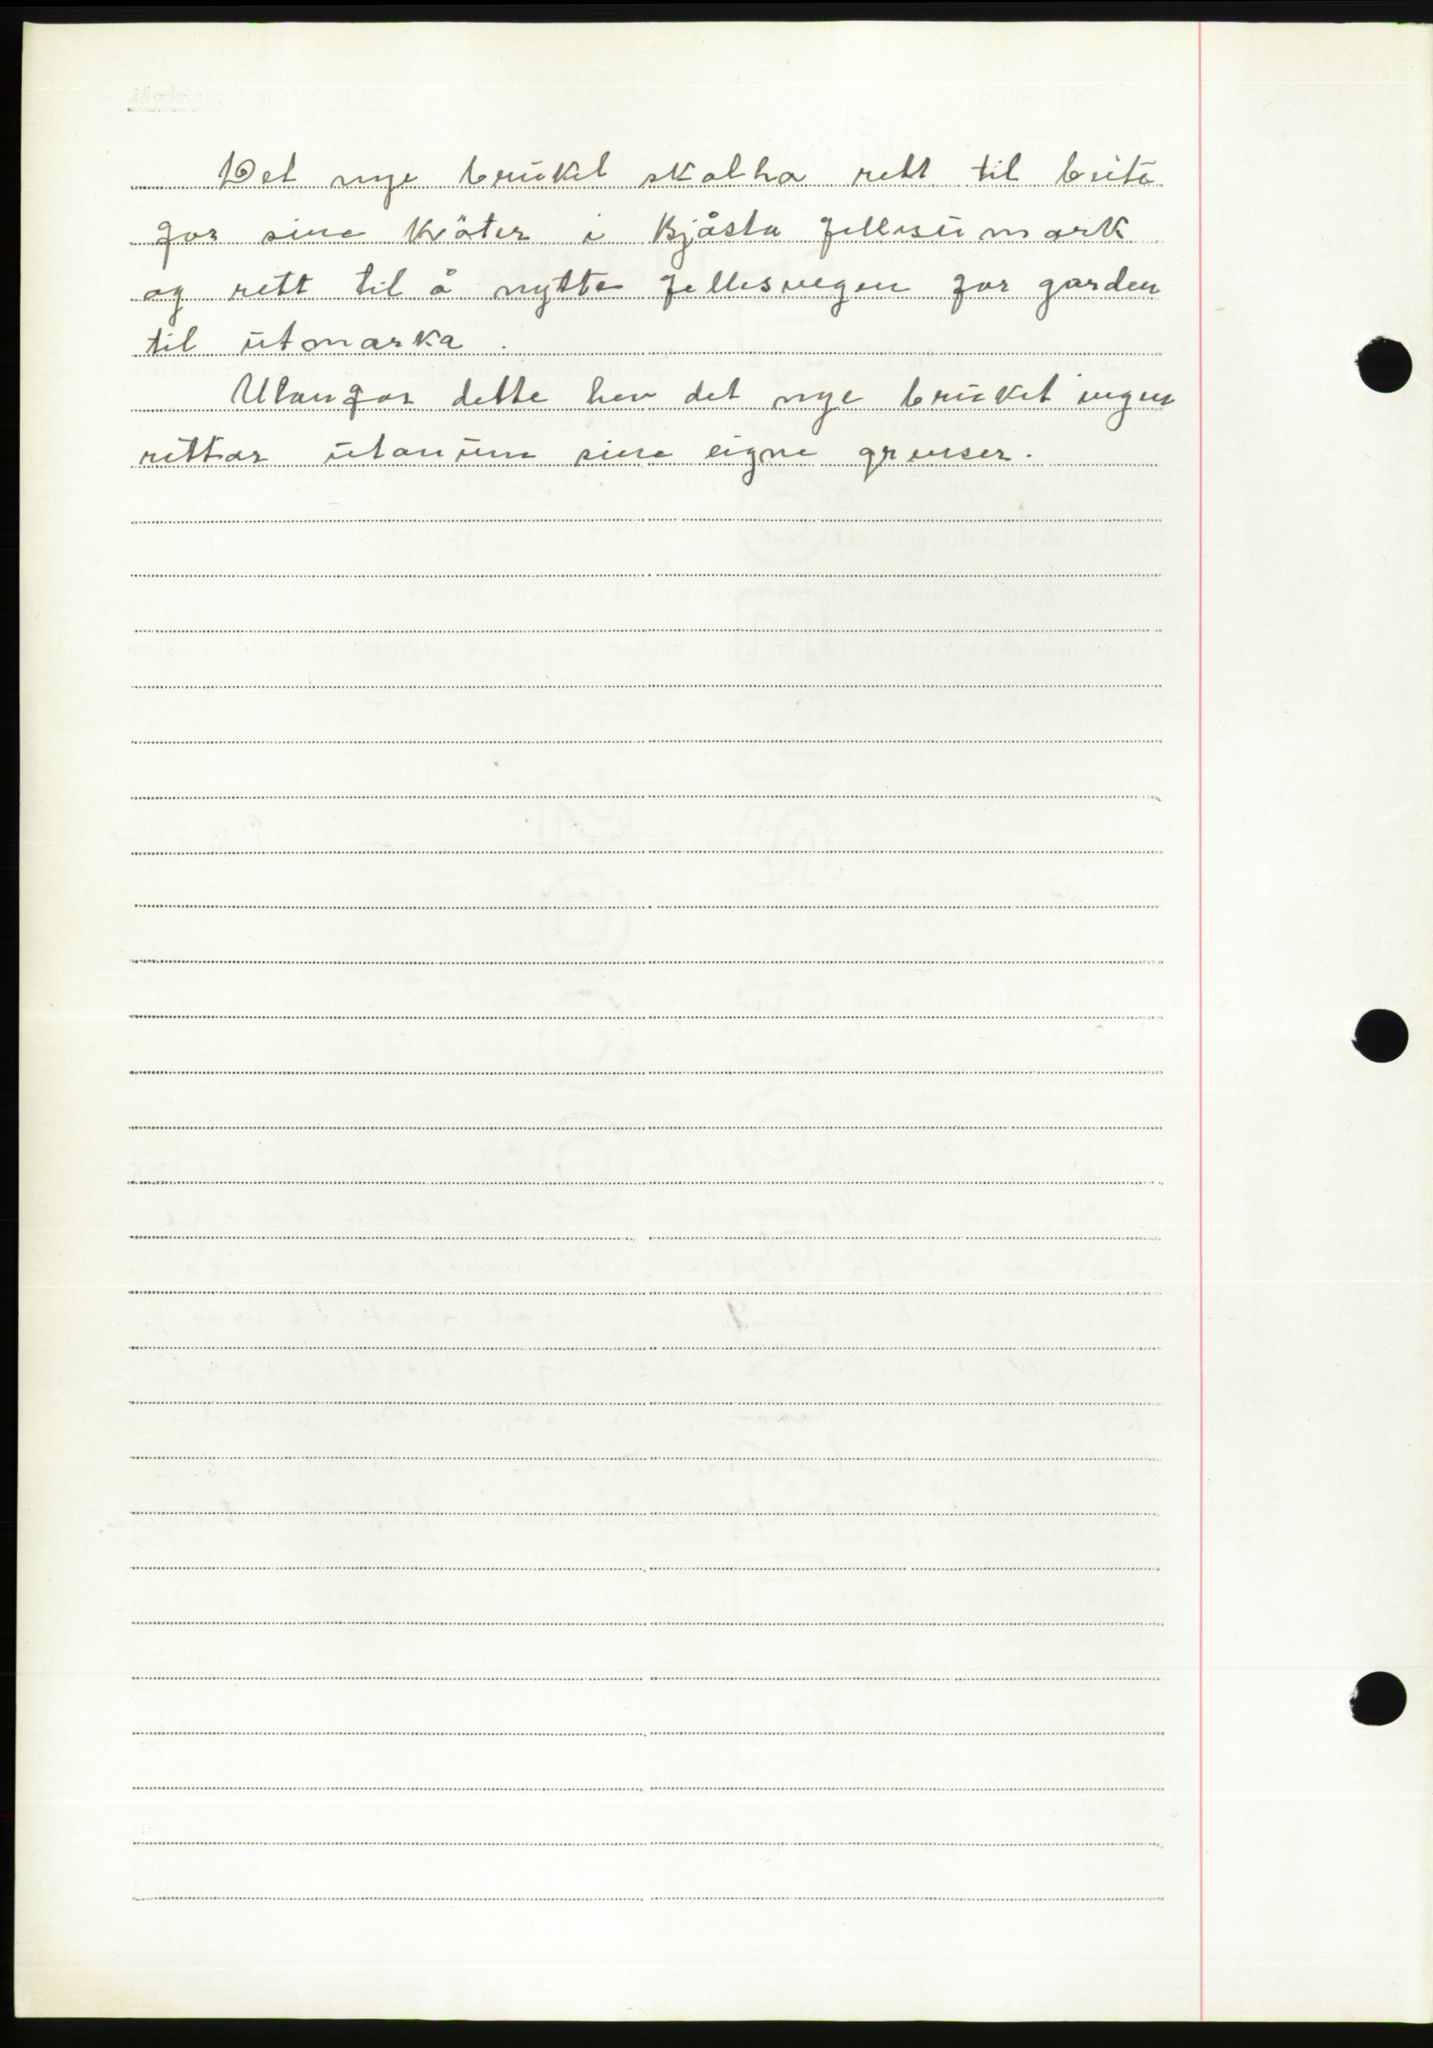 Det nye bruket skal ha rett til beite
for sine krøter i Kjåsta fellesutmark
og rett til å nytte fellesvegen for garden
til utmarka.
Utanfor dette hev det nye bruket ingen
rettar utanum sine eigne grenser.